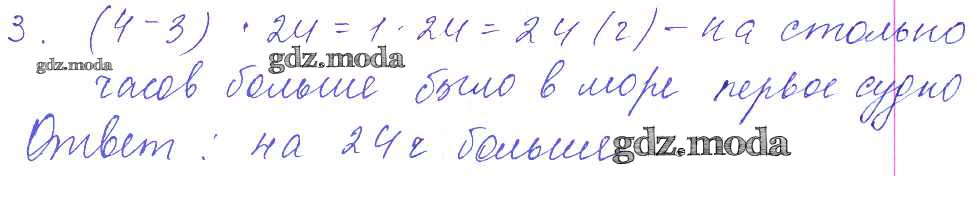 3. (4-3) · 24 = 1 · 24 = 24 (ч) - на столько
gdz.moda gdz.moda
часов больше было в море первое судно
Ответ: на 24 ч больше. gdz.moda